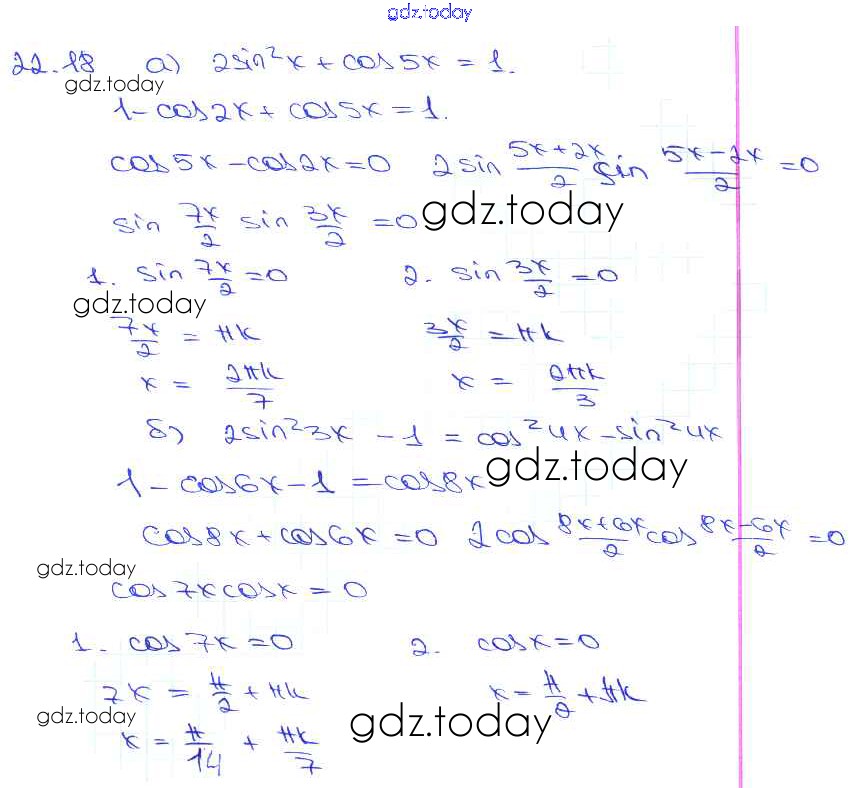 gdz.today
22.18 а) 2sin²x + cos5x = 1.
gdz.today
1 - cos2x + cos5x = 1.
cos5x - cos2x = 0 2sin (5x+2x)/2 sin (5x-2x)/2 = 0
sin 7x/2 sin 3x/2 = 0 gdz.today
1. sin 7x/2 = 0 2. sin 3x/2 = 0
gdz.today
7x/2 = πk 3x/2 = πk
x = 2πk/7 x = 2πk/3
б) 2sin²3x - 1 = cos²4x - sin²4x
1 - cos6x - 1 = cos8x gdz.today
cos8x + cos6x = 0 2cos (8x+6x)/2 cos (8x-6x)/2 = 0
gdz.today
cos7xcosx = 0
1. cos7x = 0 2. cosx = 0
7x = π/2 + πk x = π/2 + πk
gdz.today gdz.today
x = π/14 + πk/7